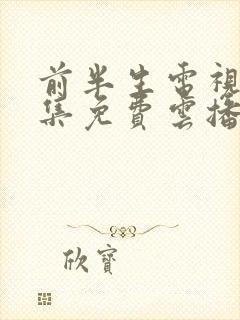 前半生電視
集免費雲播
欣寶